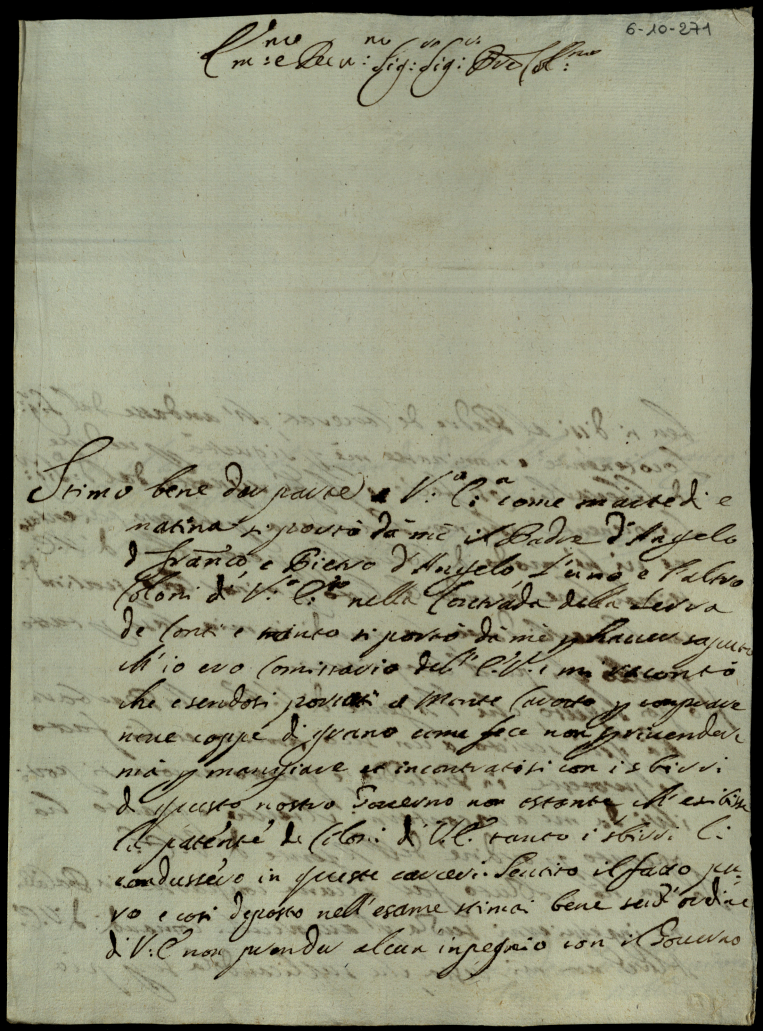 6-10-271
Ill.mo e Rev.mo Sig: Sig: P.ne Col.mo
Stimo bene dar parte a V: S: Ill.ma come martedi e
matina si portò dà mè il Padre d'Angelo
d franco, e Pietro d'Angelo, l'uno e l'altro
Coloni di V: nella Contrada della Serra
de Conti e tanto si portò dà mè p haver saputo
ch'io ero Comissario dell' e mi racontò
che esendosi portati a Monte Carotto p comprare
nove coppe di grano come fece non p rivendere
mà p mangiare et incontratisi con i sbirri
di questo nostro Governo non ostante ch'esibisse
la patente de Coloni di V: tanto i sbirri li
condussero in queste carceri. Sentito il fatto pu-
ro e cosi deposto nell'esame stimai bene senz'ordine
di V: non prender alcun inpegnio con il Governo